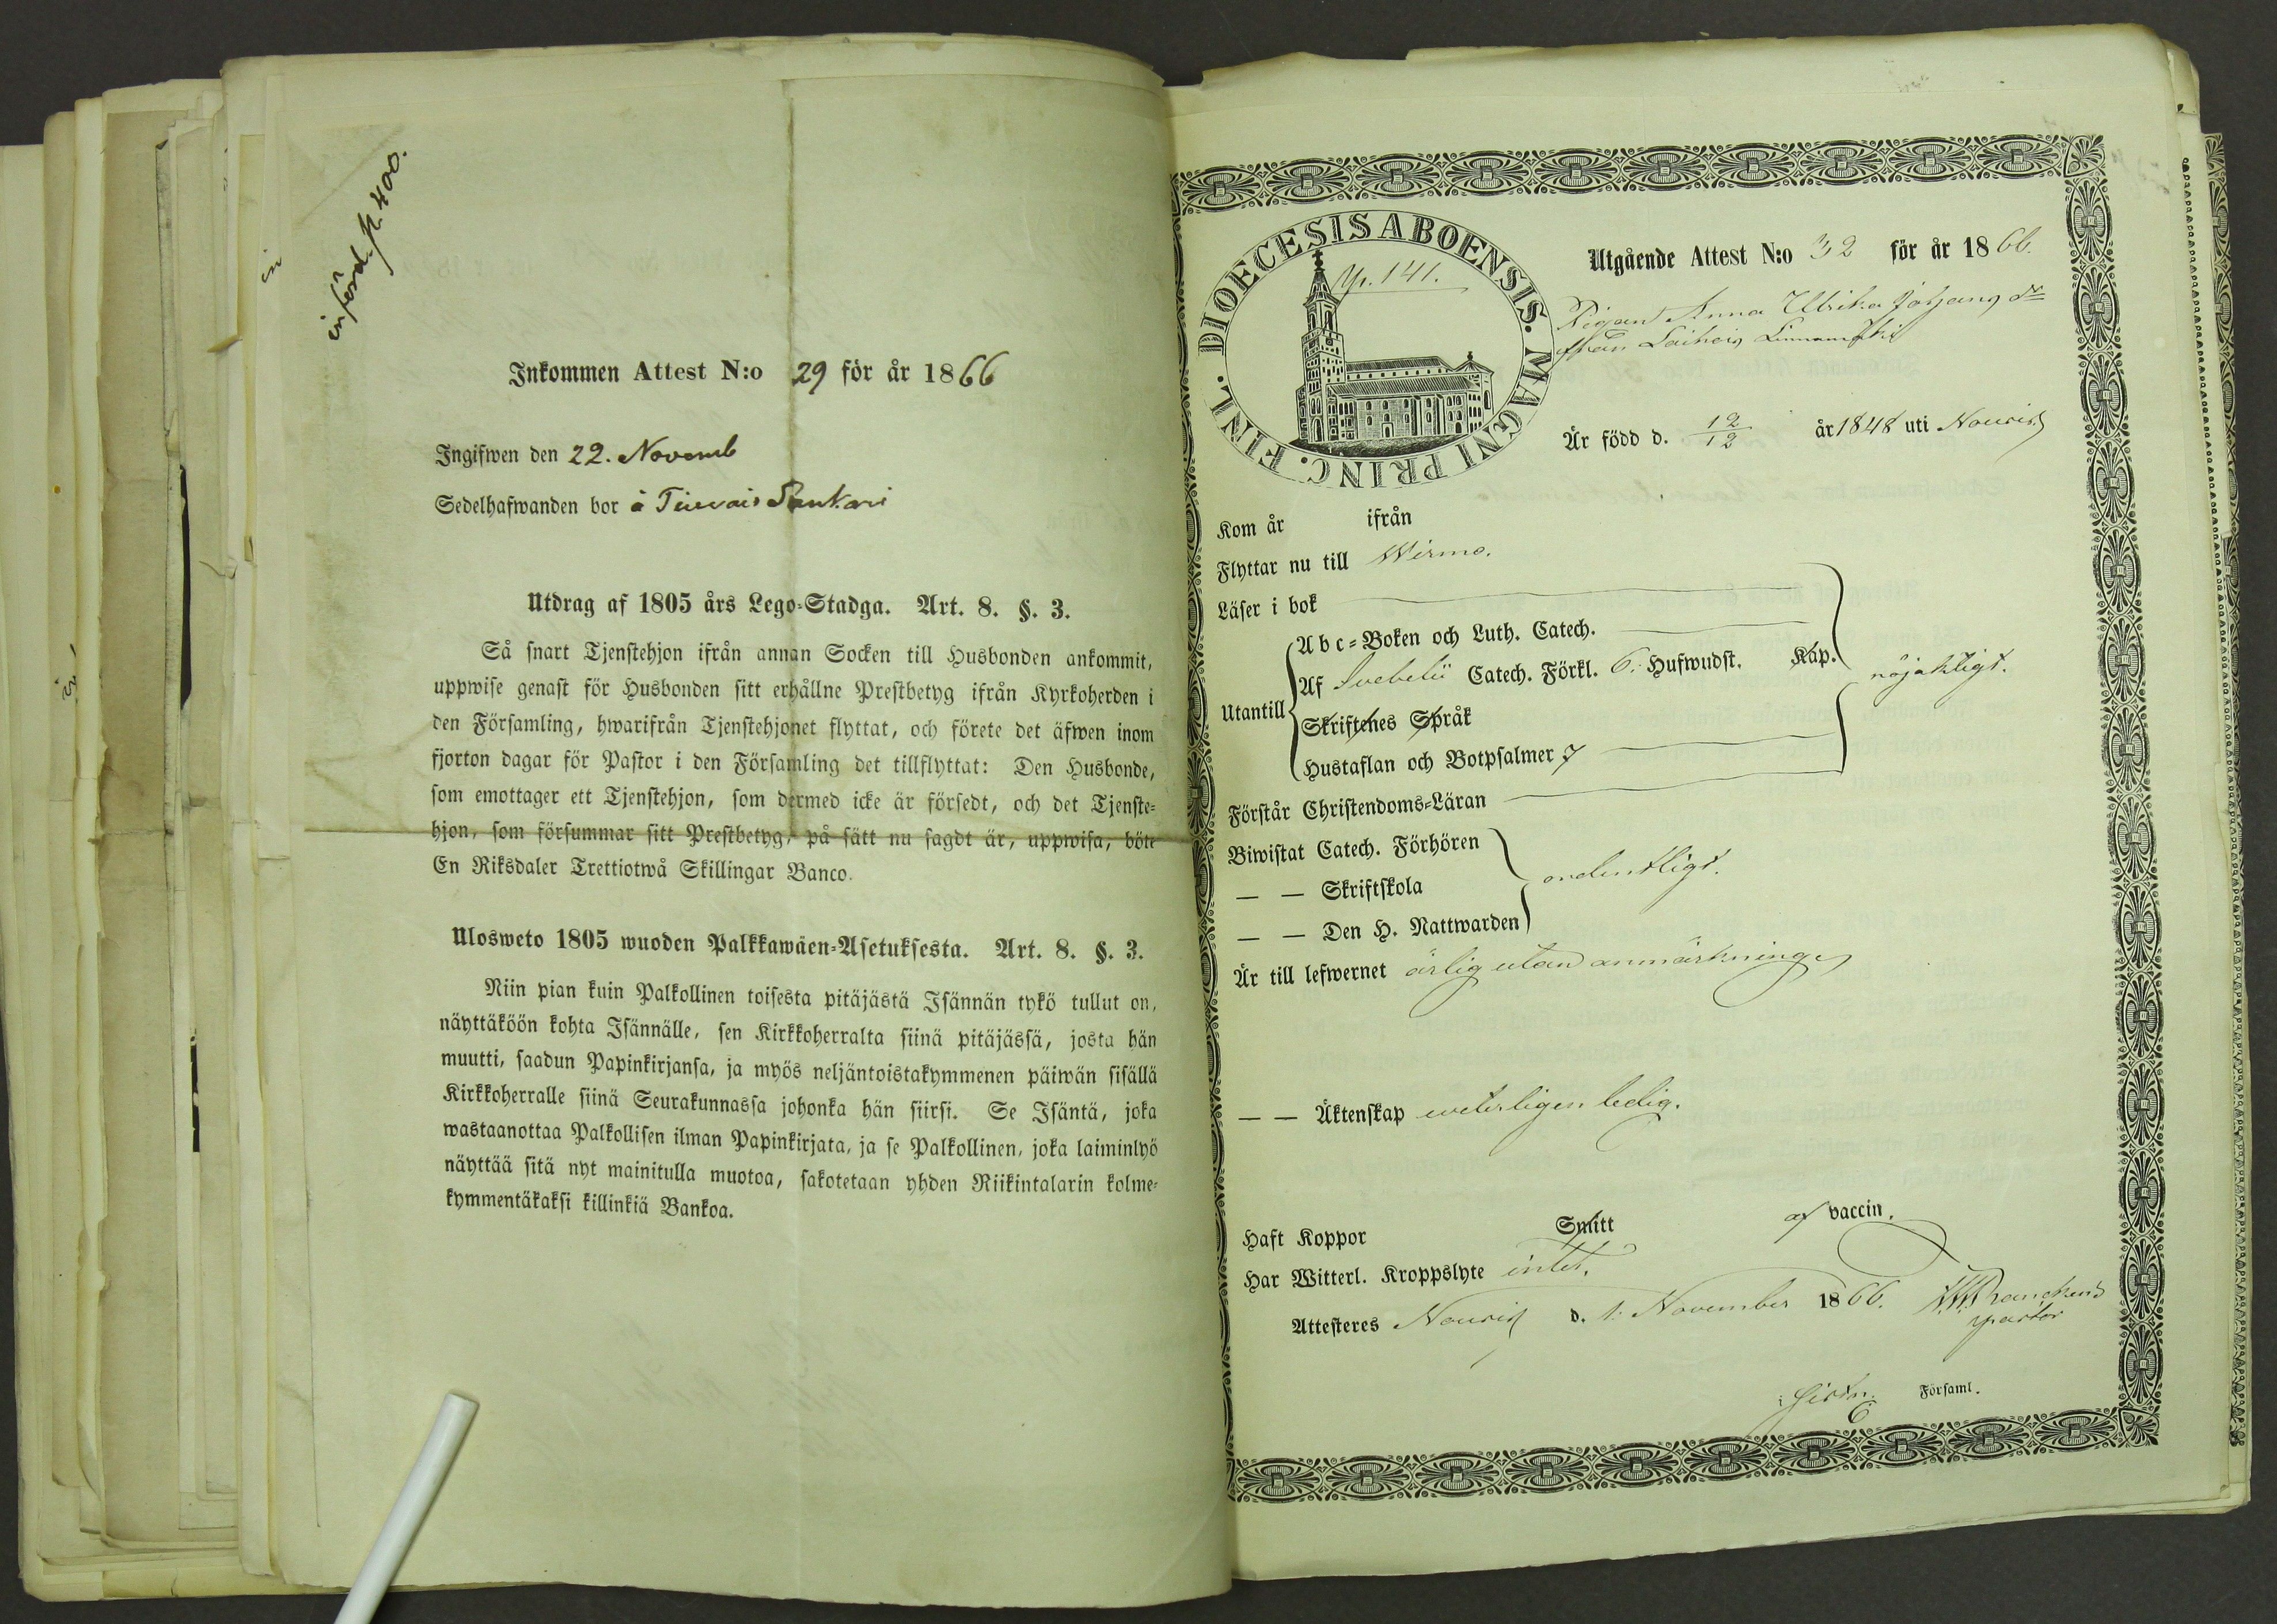 införd. p. 400.
Inkommen Attest N:o 29 för år 1866
Ingifwen den 22. Novemb
Sedelhafwanden bor å Tiuvais Sankari
Utdrag af 1805 års Lego-Stadga. Art. 8. §. 3.
Så snart Tjenstehjon ifrån annan Socken till Husbonden ankommit,
uppwise genast för Husbonden sitt erhållne Prestbetyg ifrån Kyrkoherden i
den Församling, hwarifrån Tjenstehjonet flyttat, och förete det äfwen inom
fjorton dagar för Pastor i den Församling det tillflyttat: Den Husbonde,
som emottager ett Tjenstehjon, som dermed icke är försedt, och det Tjenste-
hjon, som försummar sitt Prestbetyg, på sätt nu sagdt är, uppwisa, böte
En Riksdaler Trettiotwå Skillingar Banco.
Ulosweto 1805 wuoden Palkkawäen-Asetuksesta. Art. 8. §. 3.
Niin pian kuin Palkollinen toisesta pitäjästä Isännän tykö tullut on,
näyttäköön kohta Isännälle, sen Kirkkoherralta siinä pitäjässä, josta hän
muutti, saadun Papinkirjansa, ja myös neljäntoistakymmenen päiwän sisällä
Kirkkoherralle siinä Seurakunnassa johonka hän siirsi. Se Isäntä, joka
wastaanottaa Palkollisen ilman Papinkirjata, ja se Palkollinen, joka laiminlyö
näyttää sitä nyt mainitulla muotoa, sakotetaan yhden Riikintalarin kolme-
kymmentäkaksi killinkiä Bankoa.
DIOECESIS ABOENSIS. MAGNI PRINC. FINL.
p. 141.
Utgående Attest N:o 32 för år 1866.
Pigan Anna Ulrika Johans dr
från Laihois Linnamäki
Är född d. 12/12 år 1848 uti Nousis
Kom år ifrån
Flyttar nu till Wirmo.
Läser i bok
Abc-Boken och Luth. Catech.
Utantill Af Svebelii Catech. Förkl. 6. Hufwudst. Kap. nöjaktigt.
Skriftenes Språk
Hustaflan och Botpsalmer 7
Förstår Christendoms-Läran
Biwistat Catech. Förhören
— — Skriftskola ordentligt.
— — Den H. Nattwarden
Är till lefwernet ärlig utan anmärkning
— — Äktenskap veterligen ledig.
Haft Koppor Smitt af vaccin.
Har Witterl. Kroppslyte intet.
Attesteres Nousis d. 1. November 1866.
pastor
Församl.